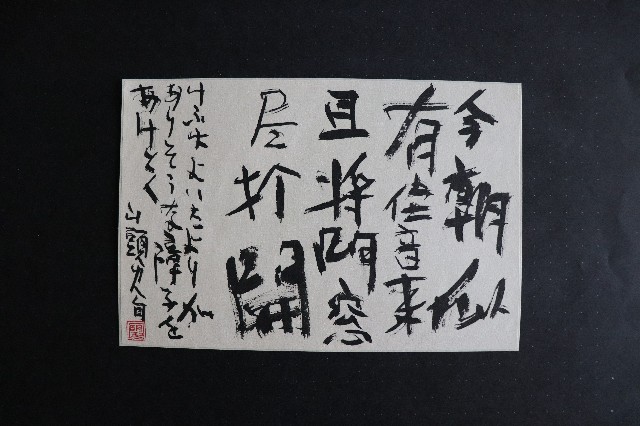 今朝似
有佳音来
且将門窓
尽打開
けふはよいたよりが
ありそうな障子を
あけとく
山頭火句